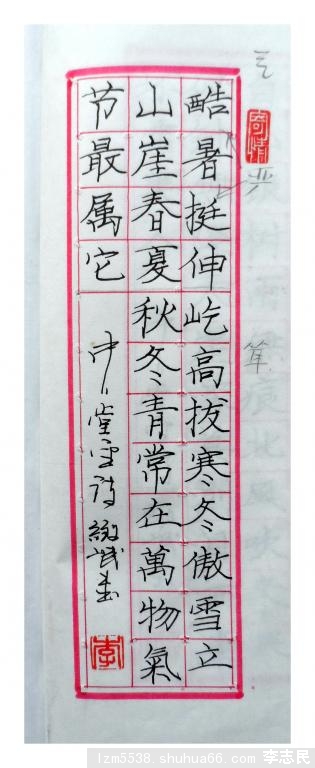 寄情
酷暑挺伸屹高拔寒冬傲雪立
山崖春夏秋冬青常在萬物氣
节最属它
李
lzm5538.shuhua66.com 李志民